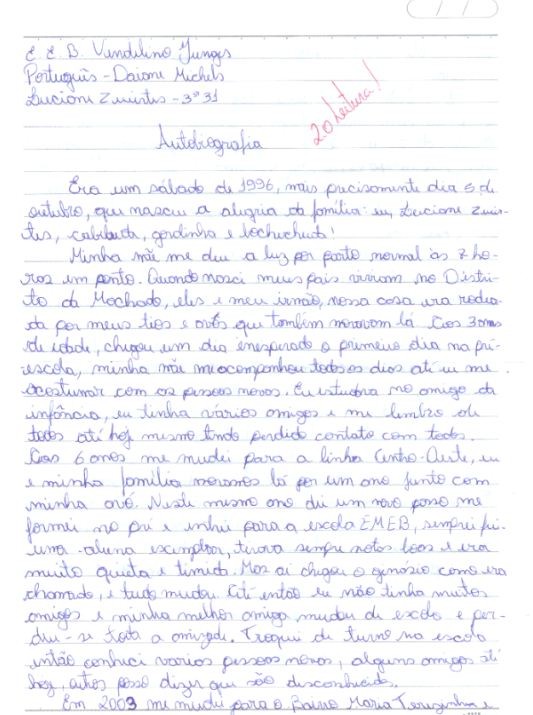 E. E. B. Vendelino Junges
Português - Daiane Michels
Luciane Zuirtes - 3º 31
20 Leitura!
Autobiografia
Era um sábado de 1996, mais precisamente dia 5 de
outubro, que nasceu a alegria da família: eu, Luciane Zuir-
tes, cabeluda, gordinha e bochechuda!
Minha mãe me deu a luz por parto normal às 7 ho-
ras em ponto. Quando nasci meus pais viviam no Distri-
to da Machado, eles e meu irmão, nossa casa era rodea-
da por meus tios e avós que também moravam lá. Aos 3 anos
de idade, chegou um dia inesperado o primeiro dia na pré-
escola, minha mãe me acompanhou todos os dias até eu me
acostumar com as pessoas novas. Eu estudava no amigo da
infância, eu tinha vários amigos e me lembro de
todos até hoj mesmo tendo perdido contato com todos.
Aos 6 anos me mudei para a linha Centro-Oeste, eu
e minha família moramos lá por um ano junto com
minha avó. Neste mesmo ano dei um novo passo me
formei no pré e entrei para a escola EMEB, sempre fui
uma aluna exemplar, tirava sempre notas boas e era
muito quieta e timida. Mas ai chegou o ginásio como era
chamado, e tudo mudou. Até então eu não tinha muitos
amigos e minha melhor amiga mudou de escola e per-
deu-se toda a amizade. Troquei de turno na escola
então conheci varios pessoas novas, alguns amigos até
hoj, outros posso dizer que são desconhecidos.
Em 2003 me mudei para o Bairro Maria Terezinha e